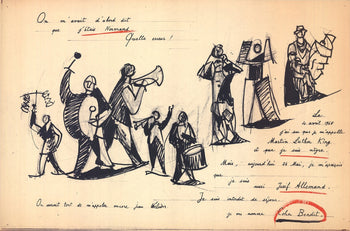 On m'avait d'abord dit
que j'étais Normand.
Quelle erreur !
Le
4 avril 1968
j'ai su que je m'appelle
Martin Luther King
et que je suis nègre.
Mais, aujourd'hui 24 Mai, je m'aperçois
que je suis
aussi Juif Allemand.
On aurait tort de m'appeler encore par
Je suis interdit de séjour.
je me nomme Cohn Bendit.